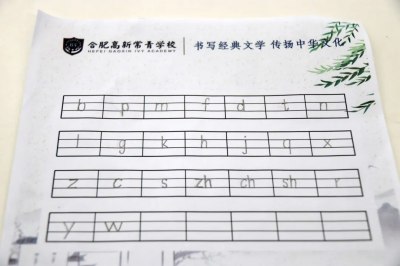 合肥高新常青学校 书写经典文学 传扬中华文化
HEFEI GAOXIN IVY ACADEMY
b p m f d t n
l g k h j q x
z c s zh ch sh r
y w